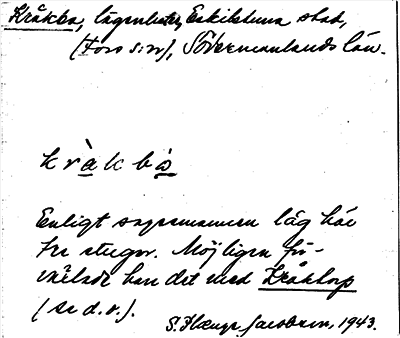 Kråkbo, lägenheter, Eskilstuna stad,
(Fors s:n), Södermanlands län.
kràkbo
Enligt sagesmannen låg här
tre stugor. Möjligen för-
växlade han det med Kråktorp
(se d.o.).
S. Hænge Jacobsen, 1943.